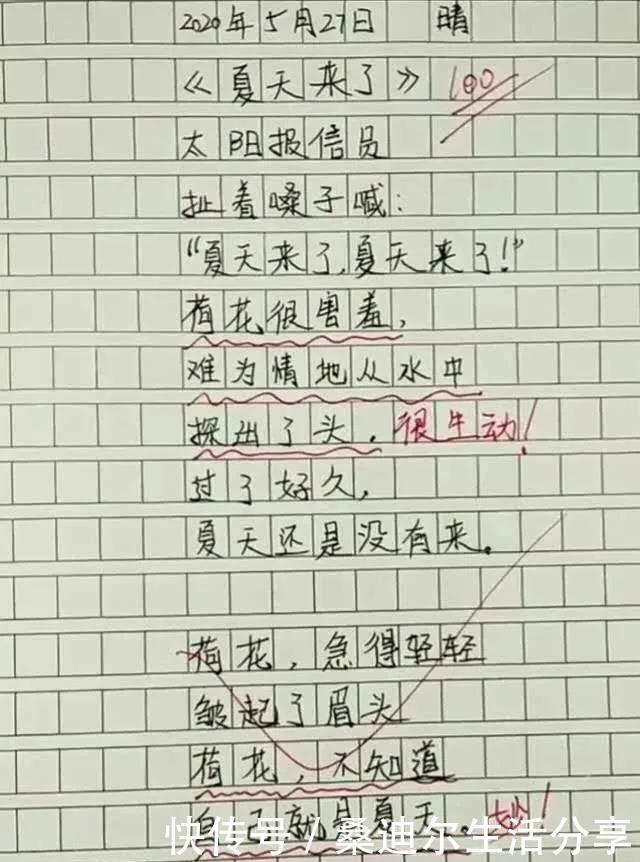 2020年5月27日 晴
《夏天来了》 100
太阳报信员
扯着嗓子喊:
“夏天来了,夏天来了!”
荷花很害羞,
难为情地从水中
探出了头。很生动!
过了好久,
夏天还是没有来。
荷花,急得轻轻
皱起了眉头
荷花,不知道
自己就是夏天。妙!
快传号/桑迪尔生活分享